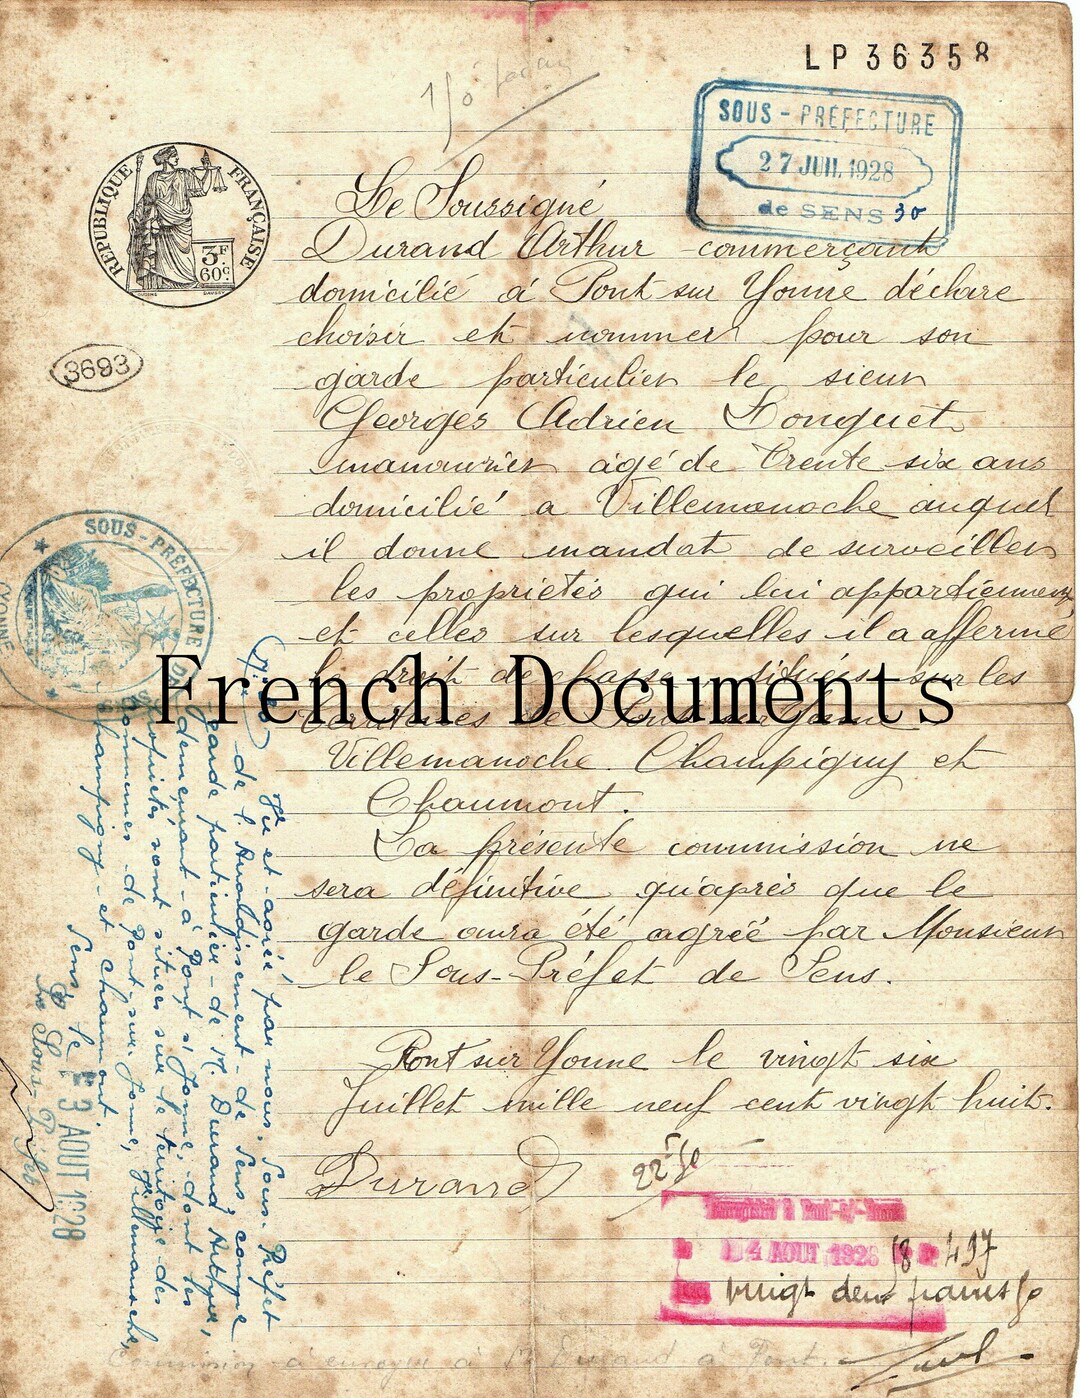 LP36358
SOUS-PRÉFECTURE
27 JUIL 1928
de SENS 30
RÉPUBLIQUE FRANÇAISE
3F
60c
3693
Le Soussigné
Durand Arthur commerçant
domicilié à Pont sur Yonne déclare
choisir et nommer pour son
garde particulier le sieur
Georges Adrien Fouquet
manouvrier agé de trente six ans
domicilié a Villemanoche auquel
il donne mandat de surveiller
les propriétés qui lui appartiennent
et celles sur lesquelles il a affermé
le droit de chasse situés sur les
French Documents
territoires de Pont sur Yonne
Villemanoche. Champigny et
Chaumont.
La présente commission ne
sera définitive qu'après que le
garde aura été agréé par Monsieur
le Sous-Préfet de Sens.
Pont sur Yonne le vingt six
Juillet mille neuf cent vingt huit.
Durand
SOUS-PRÉFECTURE DE SENS
(YONNE
Vu et agréé par nous, Sous-Préfet
de l'Arrondissement de Sens, comme
garde particulier de M. Durand Arthur,
demeurant à Pont s/ Yonne, dont les
propriétés sont situées sur le territoire des
communes de Pont-sur-Yonne, Villemanoche,
Champigny et Chaumont.
Sens le
3 AOUT 1928
Le Sous-Préfet
22f50
4 AOUT 1928 58 497
vingt deux francs 50
Commission à envoyer à Mr Durand à Pont.